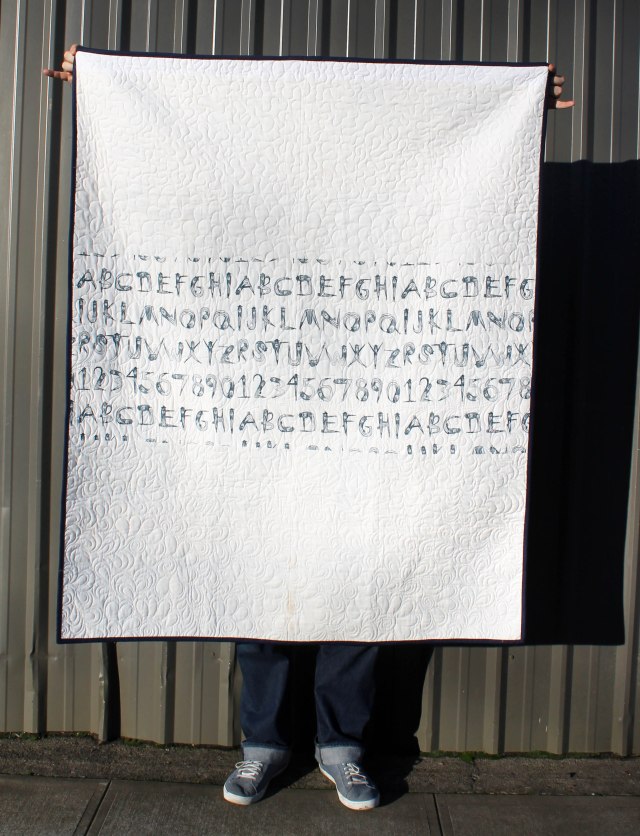 ABCDEFGHIABCDEFGHIABCDEFG
IJKLMNOPQIJKLMNOPQIJKLMNO
RSTUVWXYZRSTUVWXYZRSTUVWX
1234567890123456789012345678
ABCDEFGHIABCDEFGHIABCDEFG